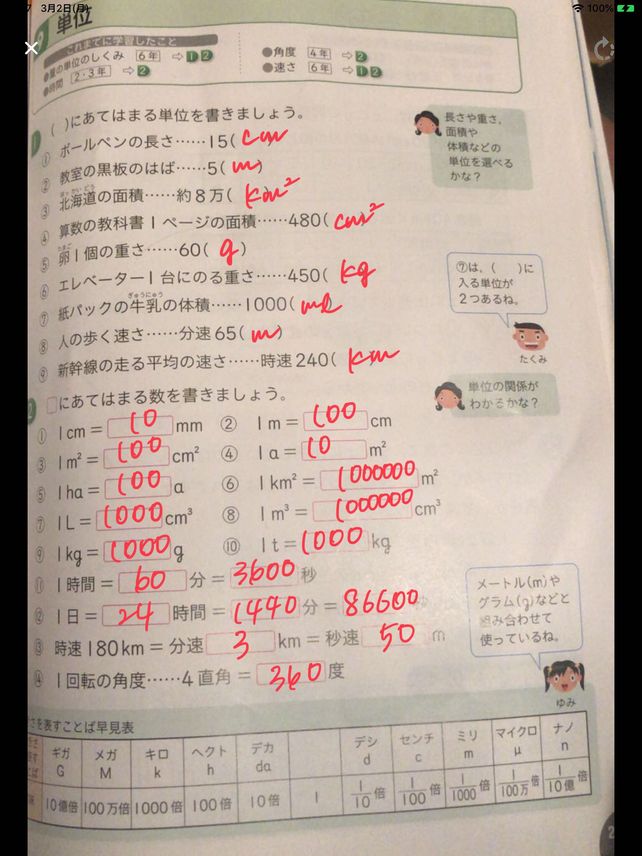 3月2日(月)
100%
単位
これまでに学習したこと
●量の単位のしくみ 6年 ⇨ 1 2
●時間 2・3年 ⇨ 2
●角度 4年 ⇨ 2
●速さ 6年 ⇨ 1 2
1 ( )にあてはまる単位を書きましょう。
① ボールペンの長さ……15( cm
② 教室の黒板のはば……5( m )
ほっかいどう
③ 北海道の面積……約8万( km²
④ 算数の教科書1ページの面積……480( cm²
たまご
⑤ 卵1個の重さ……60( g )
⑥ エレベーター1台にのる重さ……450( kg
ぎゅうにゅう
⑦ 紙パックの牛乳の体積……1000( mL
⑧ 人の歩く速さ……分速65( m )
⑨ 新幹線の走る平均の速さ……時速240( km
長さや重さ,
面積や
体積などの
単位を選べる
かな?
⑦は,( )に
入る単位が
2つあるね。
たくみ
2 □にあてはまる数を書きましょう。
単位の関係が
わかるかな?
① 1cm = 10 mm ② 1m = 100 cm
③ 1m² = 100 cm² ④ 1a = 10 m²
⑤ 1ha = 100 a ⑥ 1km² = 1000000 m²
⑦ 1L = 1000 cm³ ⑧ 1m³ = 1000000 cm³
⑨ 1kg = 1000 g ⑩ 1t = 1000 kg
⑪ 1時間 = 60 分 = 3600 秒
⑫ 1日 = 24 時間 = 1440 分 = 86600
⑬ 時速180km = 分速 3 km = 秒速 50 m
⑭ 1回転の角度……4直角 = 360 度
メートル(m)や
グラム(g)などと
組み合わせて
使っているね。
ゆみ
さを表すことば早見表
ギガ メガ キロ ヘクト デカ デシ センチ ミリ マイクロ ナノ
G M k h da d c m μ n
10億倍 100万倍 1000倍 100倍 10倍 1 1/10倍 1/100倍 1/1000倍 1/100万倍 1/10億倍